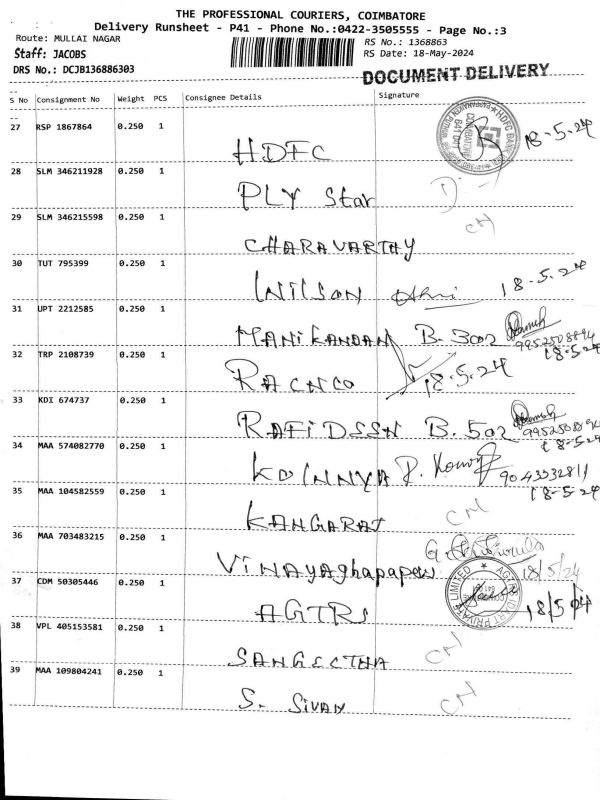 THE PROFESSIONAL COURIERS, COIMBATORE
Delivery Runsheet - P41 - Phone No.:0422-3505555 - Page No.:3
Route: MULLAI NAGAR
RS No.: 1368863
Staff: JACOBS
RS Date: 18-May-2024
DRS No.: DCJB136886303
DOCUMENT DELIVERY
S No Consignment No Weight PCS Consignee Details Signature
27 RSP 1867864 0.250 1 HDFC 18-5-24
28 SLM 346211928 0.250 1 PLY Star
29 SLM 346215598 0.250 1 CHARAVARTHY CN
30 TUT 795399 0.250 1 WILSON 18-5-24
31 UPT 2212585 0.250 1 MANIKANDAN B. 302 9952508894 18-5-24
32 TRP 2108739 0.250 1 RACNCO 18-5-24
33 KDI 674737 0.250 1 RAFIDSSN B. 502 18-5-24
34 MAA 574082770 0.250 1 KOINNYA 9043332811 18-5-24
35 MAA 104582559 0.250 1 KANGARAJ CN
36 MAA 703483215 0.250 1 VINAYAghapapew 18/5/24
37 CDM 50305446 0.250 1 AGTRS 18/5/24
38 VPL 405153581 0.250 1 SANGEETHA CN
39 MAA 109804241 0.250 1 S. SIVAN CN